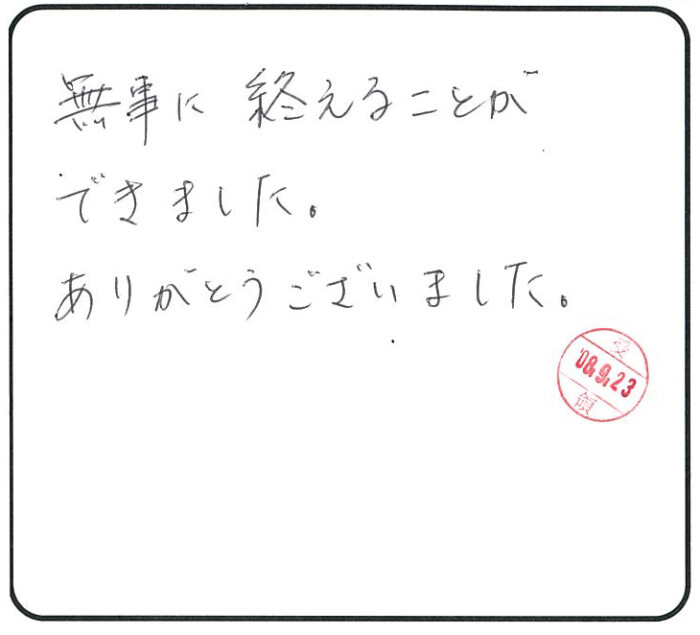 無事に終えることが
できました。
ありがとうございました。
受
'08.9.23
領